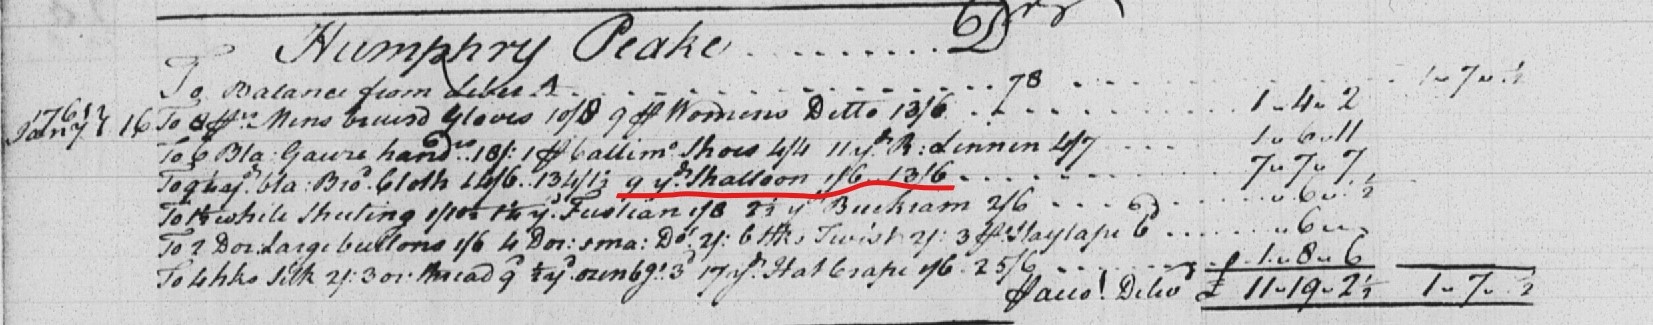 Humphry Peake . . . . . . . . Dr
To Balance from Liber A . . . . . . . . 78 . . . . . . 1 " 7 " ½
1761
Jany 16 To 8 pr. Mens Gloves 10/8 9 pr Womens Ditto 13/6 . . 1 " 4 " 2
To 6 Bla: Gauze hand 18/: 1 pr Callimo. Shoes 4/4 11 yds R: Linnen 4/7 . . . 1 " 6 " 11
bla: Bro'd Cloth 134/1½ 9 yds Shalloon 1/6 13/6 . . . . . 7 " 7 " 7
white Sheeting yd. Fustian 1/8 2½ yd Buckram 2/6 . . . . " 6 " ½
To 2 Doz: Large buttons 1/6 4 Doz: sma: Do. 2/: 6 hks Twist 2/: 3 ps Staytape 6 . . . . " 6 "
To 4 hks Silk 2/: 3 oz thread 9d ½ yd. oznbg: 3d 17 yds. Hat Crape 1/6 25/6 . . . . 1 " 8 " 6
£ 11 " 19 " 2½ 1 " 7 " ½